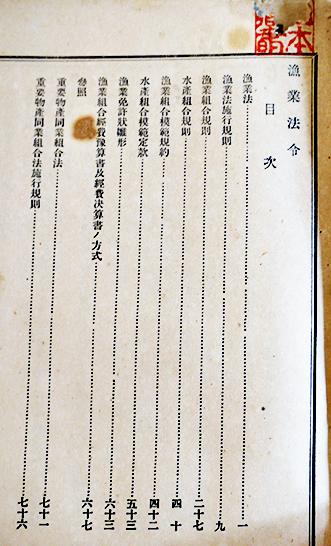 漁業法令
目次
漁業法……一
漁業法施行規則……九
漁業組合規則……二十七
水產組合規則……四十
漁業組合模範規約……四十二
水產組合模範定款……五十三
漁業免許狀雛形……六十三
漁業組合經費豫算書及經費決算書ノ方式……六十七
參照
重要物產同業組合法……七十一
重要物產同業組合法施行規則……七十六
本